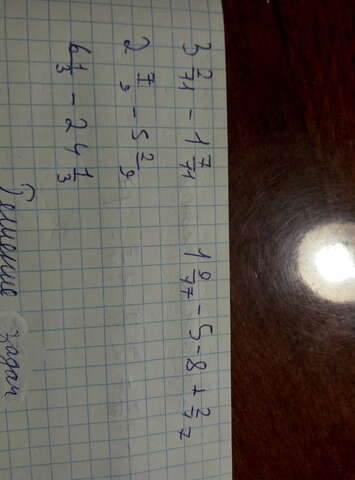 3 2/71 - 1 7/71   1 9/17 - 5 - 8 + 2/77
2 7/9 - 5 2/9
6 1/3 - 24 1/3
Решение задач